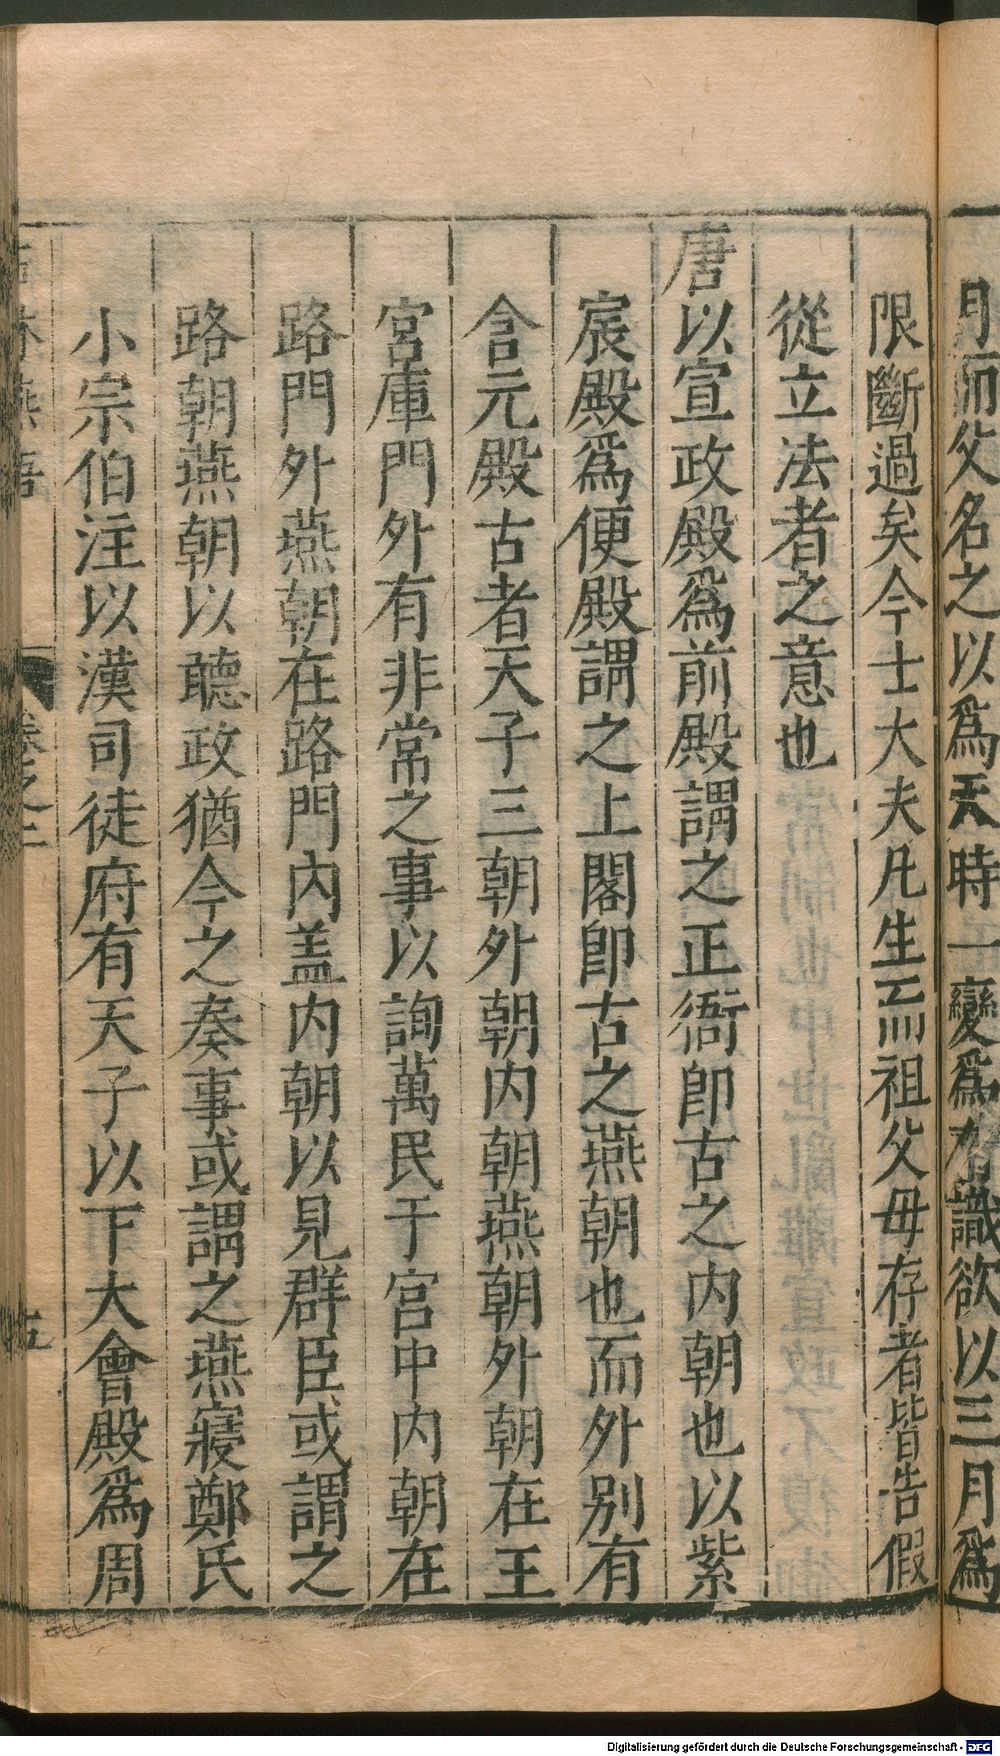 月而父名之以爲天時一變爲有識欲以三月爲
限斷過矣今士大夫凡生而祖父毋存者皆告假
從立法者之意也
唐以宣政殿爲前殿謂之正衙卽古之内朝也以紫
宸殿爲便殿謂之上閤卽古之燕朝也而外别有
含元殿古者天子三朝外朝内朝燕朝外朝在王
宮庫門外有非常之事以詢萬民于宮中内朝在
路門外燕朝在路門内盖内朝以見群臣或謂之
路朝燕朝以聽政猶今之奏事或謂之燕寢鄭氏
小宗伯注以漢司徒府有天子以下大會殿爲周
石林燕語 卷之二 五
Digitalisierung gefördert durch die Deutsche Forschungsgemeinschaft - DFG